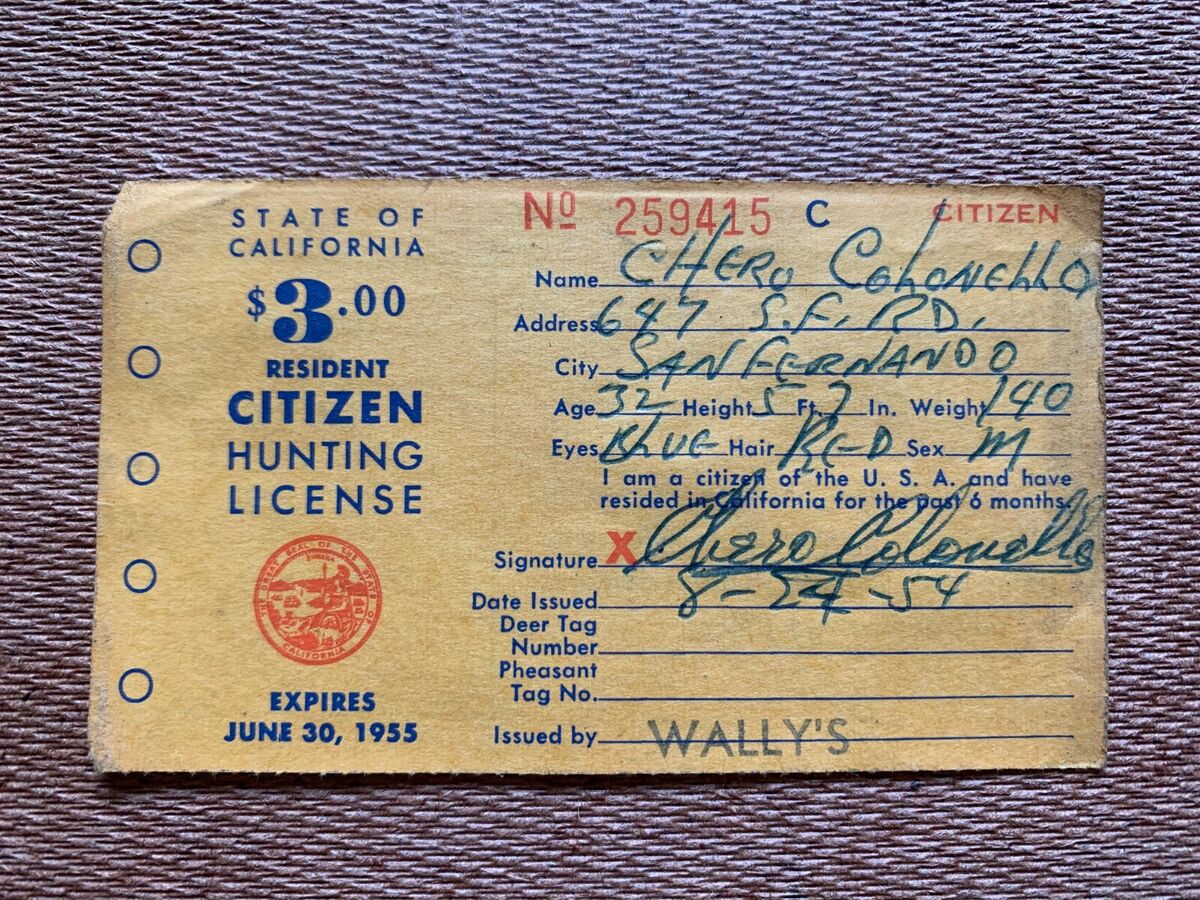 STATE OF
CALIFORNIA
$3.00
RESIDENT
CITIZEN
HUNTING
LICENSE
EXPIRES
JUNE 30, 1955
Nº 259415 C CITIZEN
Name CHERO COLONELLO
Address 647 S.F. RD.
City SAN FERNANDO
Age 32 Height 5 Ft. 7 In. Weight 140
Eyes BLUE Hair RED Sex M
I am a citizen of the U. S. A. and have
resided in California for the past 6 months.
Signature X Chero Colonello
Date Issued 8-24-54
Deer Tag
Number
Pheasant
Tag No.
Issued by WALLY'S
THE GREAT SEAL OF THE STATE OF CALIFORNIA